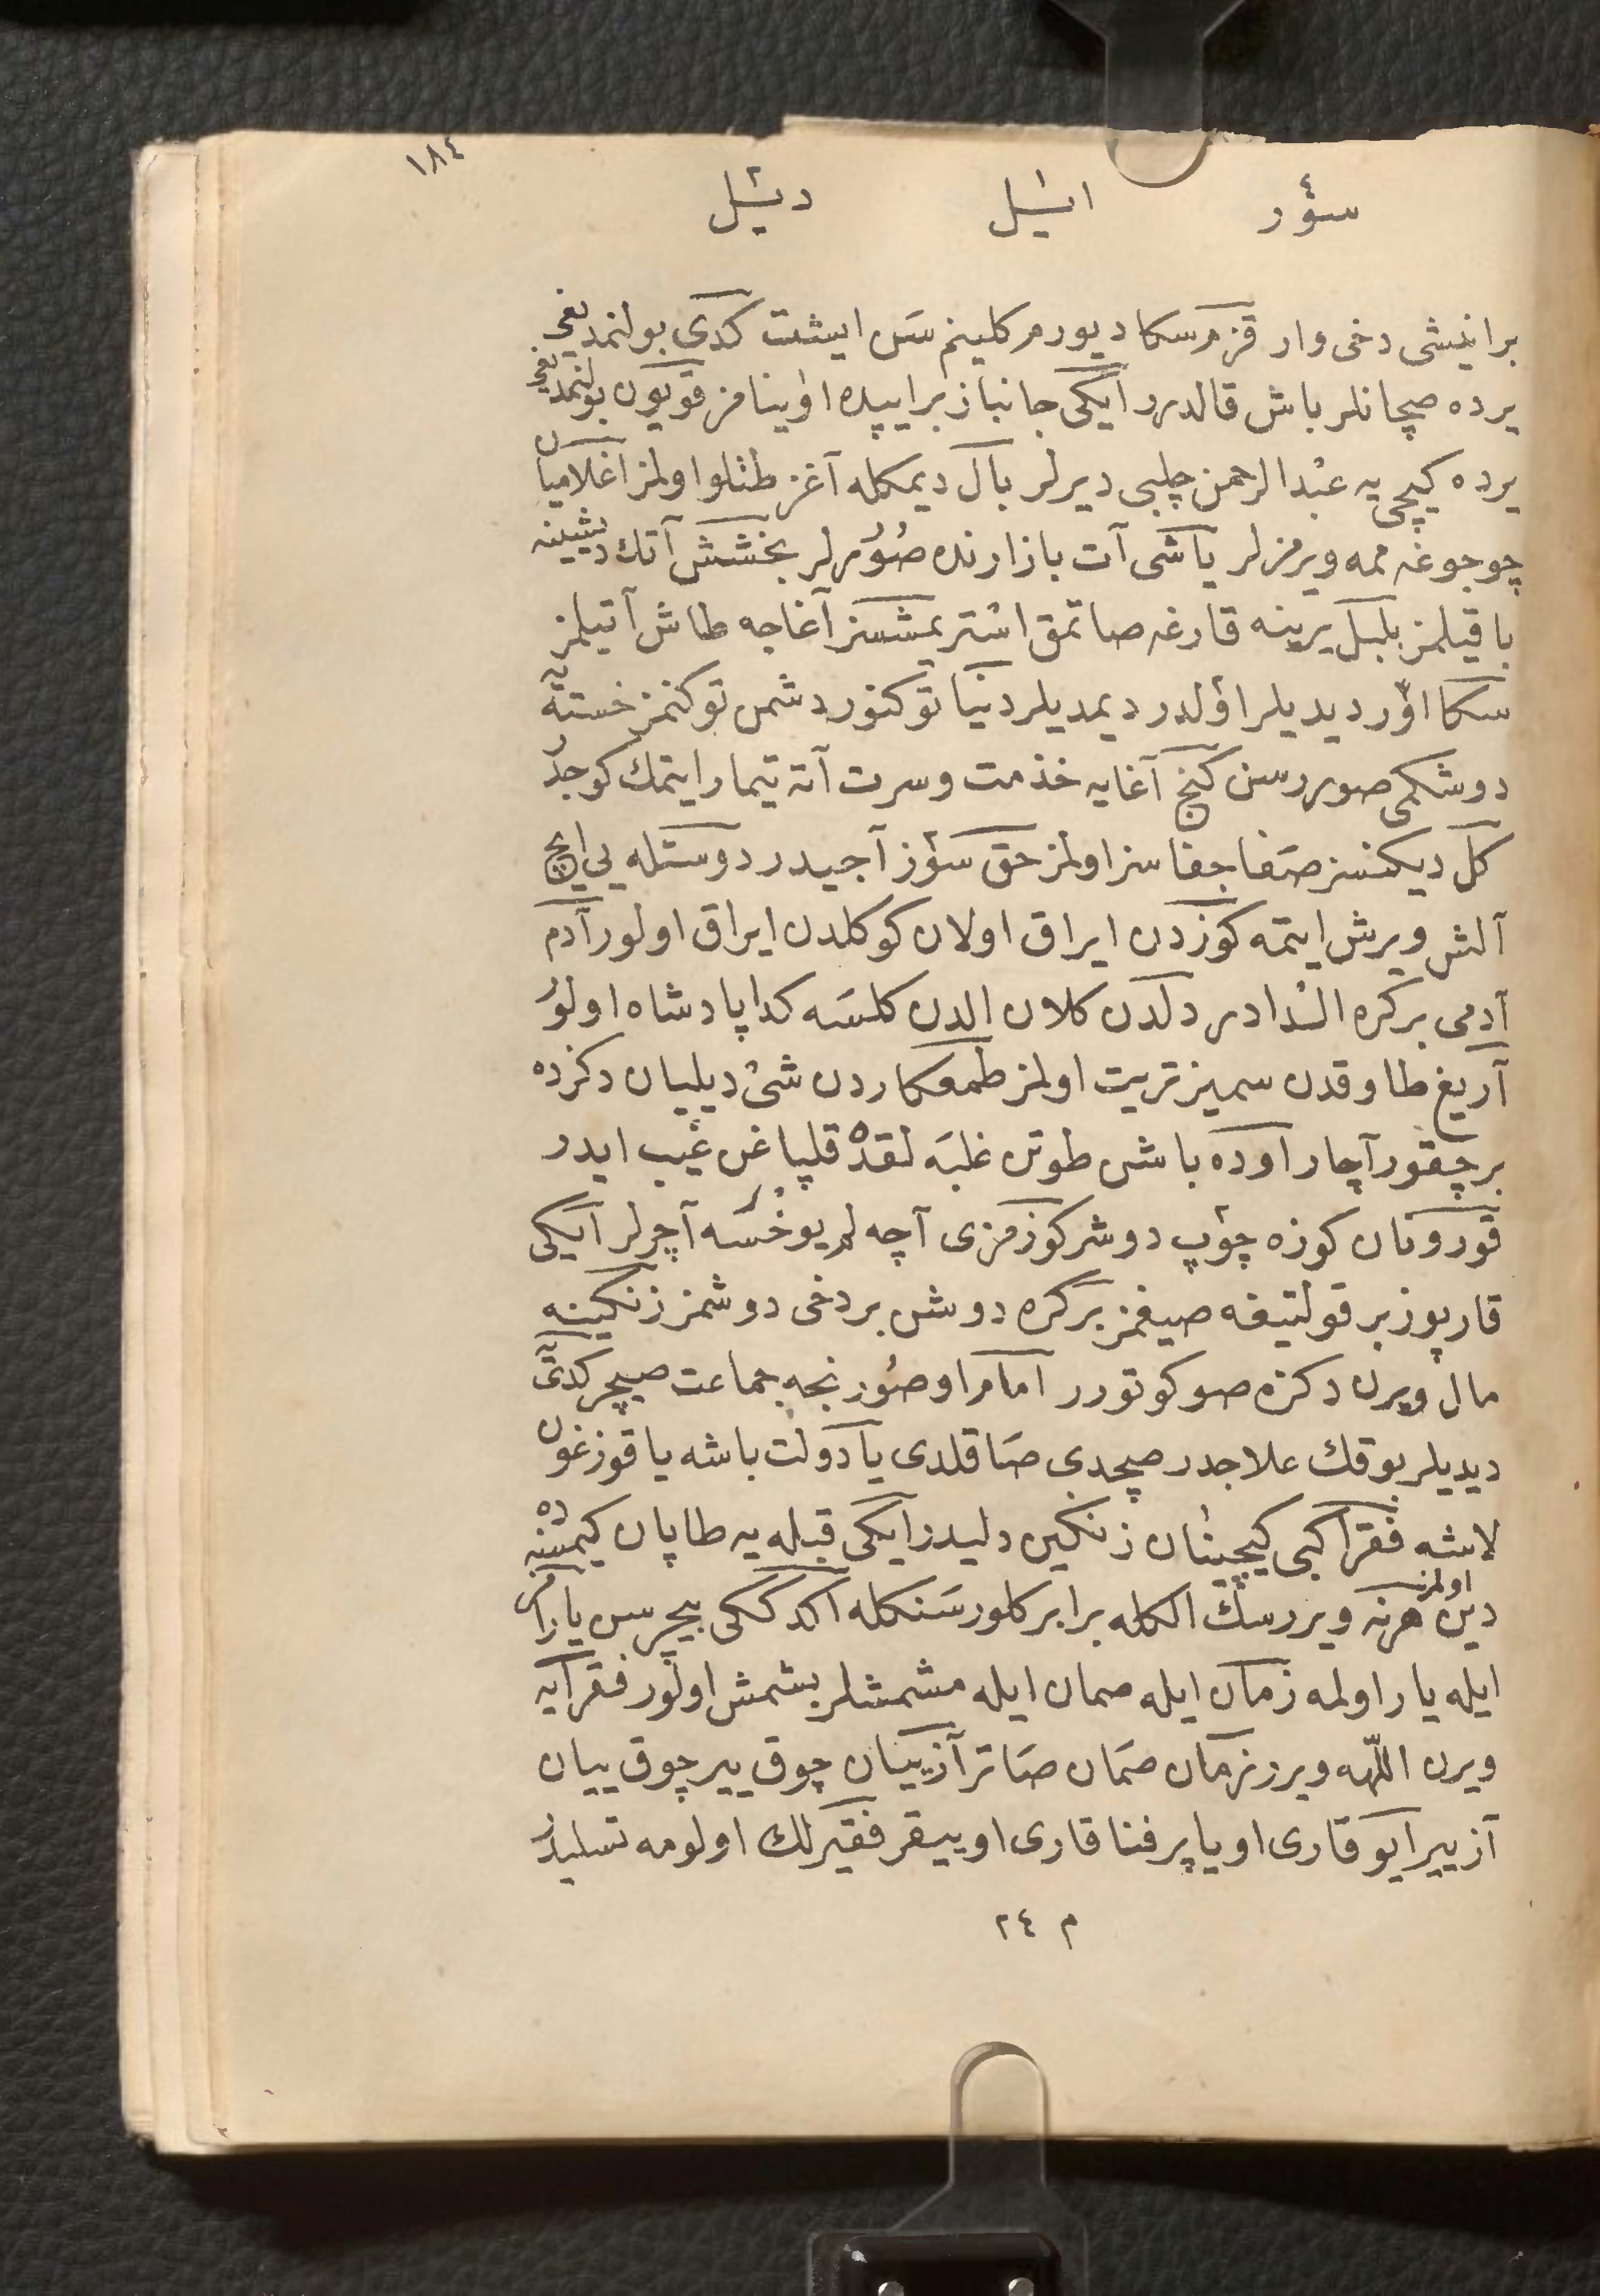 ١٨٤
سؤر ايشل دتيل
بر اينشى دخى وار قزم سكا ديورم كلينم سَن ايشت كدى بولنمديغى
يرده صچانلر باش قالدرر ايكى جانباز بر ايپده اوينامز قويون بولنمديغى
يرده كيچى يه عبد الرحمن چلبى ديرلر بال ديمكله آغز طتلو اولمز اغلاميان
چوجوغه ممه ويرمزلر ياشى آت بازارنده صورلر بخشش آتك ديشينه
باقيلمز بلبل يرينه قارغه صاتمق استر يمشسز آغاجه طاش آتيلمز
سكا اؤر ديديلر اؤلدر ديمديلر دنيا توكنور دشمن توكنمز خستيه
دوشكمى صوررسن كنج آغايه خذمت و سرت آته تيمار ايتمك كوجدر
كل ديكنسز صفا جفا سز اولمز حق سؤز آجيدر دوستله يى ايچ
آلش ويرش ايتمه كوزدن ايراق اولان كوكلدن ايراق اولور آدم
آدمى بر كره الدادر دلدن كلان الدن كلسَه كدا پادشاه اولور
آريغ طاوقدن سميز تريت اولمز طمعكاردن شئ ديليان دكزده
بر چقور آچار اوده باشى طوتن غلبَه لقده قلپاغن غيب ايدر
قورونان كوزه چوپ دوشر كوزمزى آچه لم يوخسَه آچرلر ايكى
قارپوز بر قولتيغه صيغمز بر كره دوش بر دخى دوشمز زنكينه
مال ويرن دكزه صو كوتورر امام اوصورنجه جماعت صيچر كدى يه
ديديلر بوقك علاجدر صچدى صاقلدى يا دولت باشه يا قوزغون
لاشه فقرا كبى كيچينان زنكين دليدر ايكى قبله يه طاپان كيمسنه ده
دين اولمز هرنه ويررسك الكله برابر كلور سَنكله اكدككى بيچرسن يارامز
ايله يار اولمه زمان ايله صمان ايله مشمشلر بشمش اولور فقرايه
ويرن اللّهه ويرر زمان صَمان صَاتر آز ييان چوق يير چوق ييان
آز يير ايو قارى او ياپر فنا قارى او ييقر فقيرلك اولومه تسليدر
م ٢٤